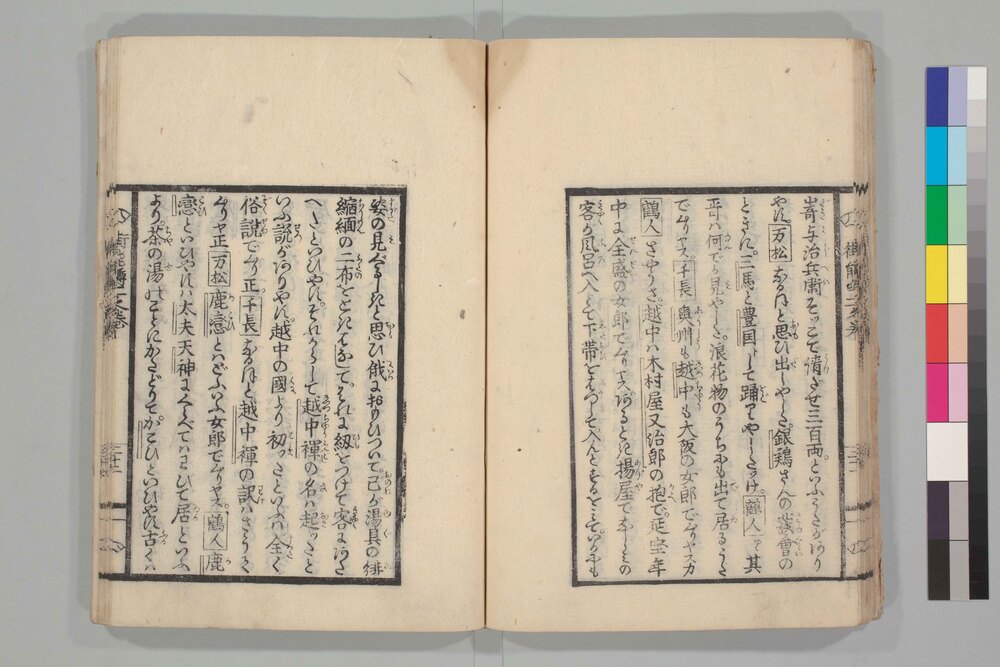 嵜与治兵衛そつこで情ざせ三百両といふうたがあり
やす 万松 なるほど思ひ出しやした銀鶏さんの讌會の
ときに三馬と豊国として踊りやしたツけ 鶴人 ヲヤ其
哥ハ何でか見やした浪花物のうちにも出て居るうた
でムりヤス 千長 奥州も越中も大阪の女郎でムりヤスガ
鶴人 さやうさ越中ハ木村屋又治郎の抱で延宝年
中に全盛の女郎でムりヤスあるとき揚屋でなじみの
客が風呂へ入とて下帯をはづして入んとするを見ていかにも
姿の見ぐるしきと思ひ俄におもひついて己が湯具の緋
縮緬の二布をときはなしてそれに紐をつけて客にあた
へたといひやすそれからして越中褌の名ハ起つたと
いふ説がありやす越中の國より初つたといふハ全く
俗説でムり正 千長 なるほど越中褌の訳ハさうで
ムりヤ正 万松 鹿戀とハどふいふ女郎でムりヤス 鶴人 鹿
戀といひやすハ太夫天神にくらべてハさびて居といふ
より茶の湯のことにかたどりてかこひといひやす古くハ